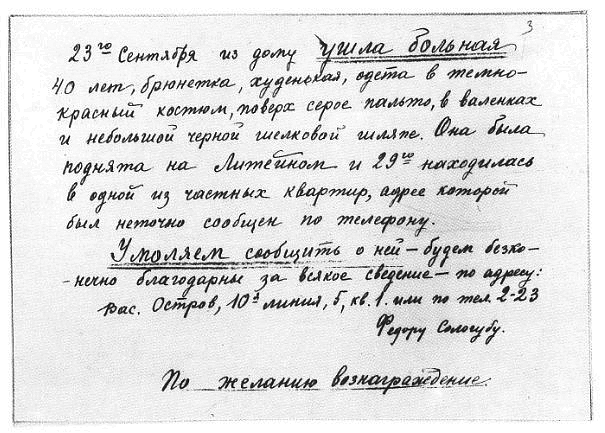 3
23го Сентября из дому ушла больная
40 лет, брюнетка, худенькая, одета в темно-
красный костюм, поверх серое пальто, в валенках
и небольшой черной шелковой шляпе. Она была
поднята на Литейном и 29го находилась
в одной из частных квартир, адрес которой
был неточно сообщен по телефону.
Умоляем сообщить о ней – будем безко-
-нечно благодарны за всякое сведение – по адресу:
Вас. Остров, 10я линия, 5, кв. 1. или по тел. 2-23
Федору Сологубу.
По желанию вознаграждение.